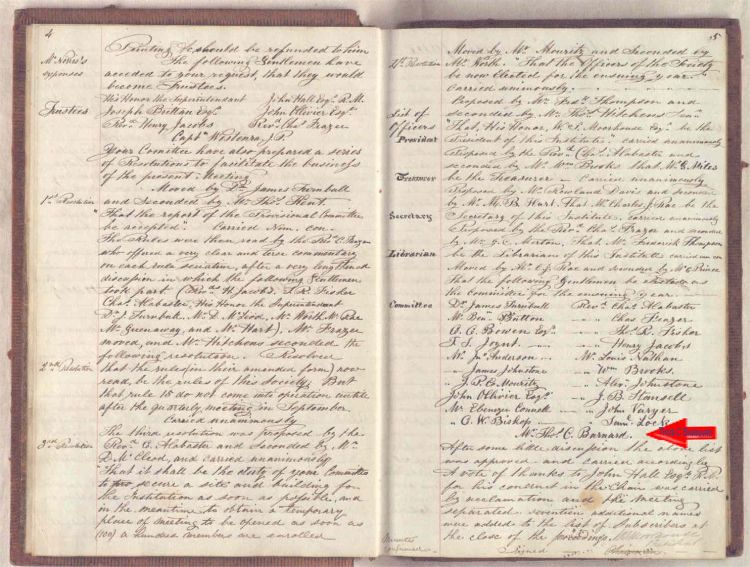 4
Printing &c should be refunded to him
The following Gentlemen have
acceded to your request, that they would
become Trustees.
Trustees
His Honor the Superintendent John Hall Esqr. R.M.
Joseph Brittan Esqr. John Ollivier Esqr.
Revd. Henry Jacobs Revd. Chas. Frazer
Captn. Westenra J.P.
Your Comittee have also prepared a series
of Resolutions to facilitate the business
of the present Meeting
Moved by Dr. James Turnbull
1st Resolution
and Seconded by Mr. Thos. Kent.
"That the report of the Provisional Committee
be accepted" Carried Nem. con.
The rules were then read by the Revd. C. Frazer
who offered a very clear and terse commentary
on each rule seriatim, after a very lengthened
discussion in which the following Gentlemen
took part (Revd. H. Jacobs, T. R. Fisher
Chas. Alabaster, His Honor the Superintendent
Dr. J. Turnbull, Mr. D. McLeod, Mr. Worth, Mr. Rae
Mr. Greenaway, and Mr. Hart), Mr. Frazer
moved, and Mr. Hitchens seconded the
following resolution. Resolved
2nd Resolution
that the rules (in their amended form) now
read, be the rules of this Society. But
that rule 18 do not come into operation untill
after the quarterly meeting in September.
Carried unanimously
The third resolution was proposed by the
3rd Resolution
Revd. C. Alabaster and Seconded by Mr.
D. McCleod, and carried unanimously
That it shall be the duty of your Committee
to secure a site and building for
the Institution as soon as possible, and
in the meantime to obtain a temporary
place of meeting to be opened as soon as
(100) a hundred members are enrolled
5
Moved by Mr. Mouritz and Seconded by
4th Resolution
Mr. Worth. "That the Officers of the Society
be now elected for the ensuing year.
Carried unimously.
Proposed by Mr. Thompson and
List of
Officers
seconded by Mr. Thos. Hitchens Senr.
"That, His Honor, W. S. Moorhouse Esqr. be the
President
President of the Institute. carried unanimously
Proposed by the Revd. Chas. Alabaster and
seconded by Mr. Wm. Brooks that Mr. G. Miles
Treasurer
be the Treasurer — Carried unanimously
Proposed by Mr. Rowland Davis and seconded
by Mr. M. B. Hart, That Mr. Charles J. Rae be the
Secretary
Secretary of this Institute, carried unanimously
Proposed by the Revd. Chas. Frazer and seconded
by Mr. G. C. Morton, That, Mr. Frederick Thompson
Librarian
be the Librarian of this Institute
Moved by Mr. C. J. Rae and Seconded by Mr. C. Prince
That the following Gentlemen be elected as
the Committee for the ensuing year.
Committee
Dr. James Turnbull Revd. Chas. Alabaster
Mr. Button Chas. Frazer
C. C. Bowen Esqr. Th. R. Fisher
T. S. Joynt Henry Jacobs
Mr. Jno. Anderson Mr. Louis Nathan
James Johnstone Wm. Brooks
J. P. C. Mouritz Alexr. Johnstone
John Ollivier Esqr. J. B. Stansell
Mr. Ebenezer Connell John Varyer
G. W. Bishop Saml. Lock
Mr. Thos. C. Barnard
After some little discussion the above list
was approved and carried accordingly
A vote of thanks to John Hall Esqr. R.M.
for his conduct in the Chair was carried
by acclamation and the meeting
separated. seventeen additional names
were added to the list of Subscribers at
the close of the proceedings.
Minutes
confirmed
Signed